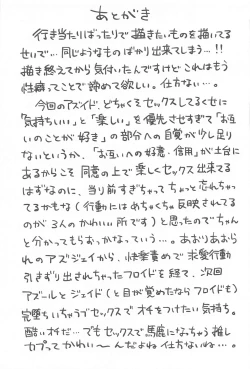 あとがき
行き当たりばったりで描きたいものを描いてる
せいで…同じようなものばかり出来てしまう…!!
描き終えてから気付いたんですけどこれはもう
性癖ってことで諦めて欲しい。仕方ない…。
今回のアズイド、どちゃくそセックスしてるくせに
「気持ちいい」と「楽しい」を優先させすぎて「お互
いのことが好き」の部分への自覚が少し足り
ないというか、「お互いへの好意・信用」が土台に
あるからこそ同意の上で楽しくセックス出来てる
はずなのに、当り前すぎちゃってちょっと忘れちゃっ
てるかもな(行動にはめちゃくちゃ反映されてる
のが3人のかわいい所です)と思ったのでちゃん
と分かってもらおっかなっていう…。あおりあおら
れのアズジェイから、快楽責めで求愛行動
引きずり出されちゃったフロイドを経て、次回
アズールとジェイド(と目が覚めたならフロイドも)
完堕ちいちゃラブセックスでオチをつけたい気持ち。
酷いオチだ…でもセックスで馬鹿になっちゃう推し
カプってかわい〜んだよね仕方ないね…。